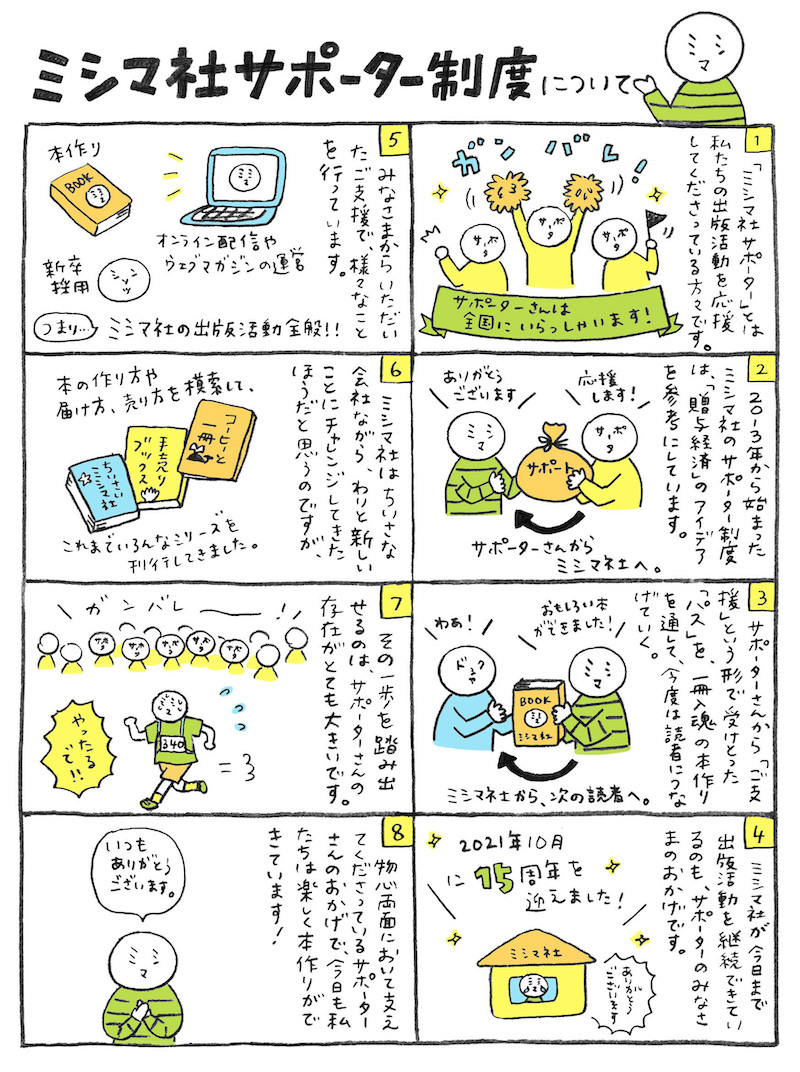 ミシマ社サポーター制度について
ミシマ
1
「ミシマ社サポーター」とは
私たちの出版活動を応援
してくださっている方々です。
ガンバレ!
サポタ
サポタ
サポタ
サポーターさんは
全国にいらっしゃいます!
2
2013年から始まった
ミシマ社のサポーター制度
は、「贈与経済」のアイデア
を参考にしています。
ありがとう
ございます
応援
します!
ミシマ
サポタ
サポート
サポーターさんから
ミシマ社へ。
3
サポーターさんから「ご支
援」という形で受けとった
「パス」を、一冊入魂の本作り
を通して、今度は読者につな
げていく。
わあ!
おもしろい本
ができました!
ドクシャ
ミシマ
BOOK
ミシマ社
ミシマ社から、次の読者へ。
4
ミシマ社が今日まで
出版活動を継続できてい
るのも、サポーターのみなさ
まのおかげです。
2021年10月
に15周年を
迎えました!
ミシマ社
ありがとう
ございます
5
みなさまからいただい
たご支援で、様々なこと
を行っています。
本作り
BOOK
オンライン配信や
ウェブマガジンの運営
新卒
採用
シンソツ
つまり…
ミシマ社の出版活動全般!!
6
ミシマ社はちいさな
会社ながら、わりと新しい
ことにチャレンジしてきた
ほうだと思うのですが、
本の作り方や
届け方、売り方を模索して、
ちいさい
ミシマ社
手売り
ブックス
コーヒーと
一冊
これまでいろんなシリーズを
刊行してきました。
7
その一歩を踏み出
せるのは、サポーターさんの
存在がとても大きいです。
ガンバレー!
サポタ
サポタ
サポタ
サポタ
サポタ
サポタ
ミシマ
340
やったる
で!!
8
物心両面において支え
てくださっているサポーター
さんのおかげで、今日も私
たちは楽しく本作りがで
きています!
いつも
ありがとう
ございます。
ミシマ